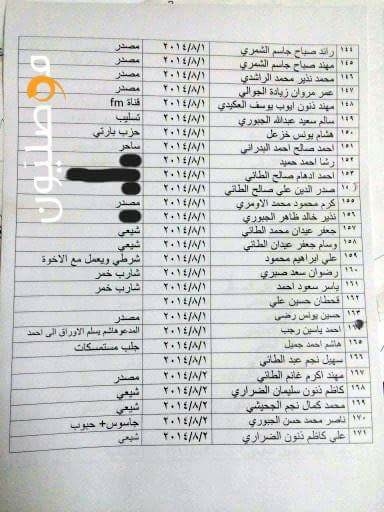 موصليون
١٤٤ رائد صباح جاسم الشمري ٢٠١٤/٨/١ مصدر
١٤٥ مهند صباح جاسم الشمري ٢٠١٤/٨/١ مصدر
١٤٦ محمد نذير محمد الراشدي ٢٠١٤/٨/١ مصدر
١٤٧ عمر مروان زيادة الجوالي ٢٠١٤/٨/١ مصدر
١٤٨ مهند ذنون ايوب يوسف العكيدي ٢٠١٤/٨/١ قناة fm
١٤٩ سالم سعيد عبدالله الجبوري ٢٠١٤/٨/١ تسليب
١٥٠ هشام يونس خزعل ٢٠١٤/٨/١ حزب بارتي
١٥١ احمد صالح احمد البدراني ٢٠١٤/٨/١ ساحر
١٥٢ رشا احمد حميد ٢٠١٤/٨/١
١٥٣ احمد ادهام صالح الطائي ٢٠١٤/٨/١
صدر الدين علي صالح الطائي ٢٠١٤/٨/١
١٥٥ كرم محمود محمد الاومري ٢٠١٤/٨/١ مصدر
١٥٦ نذير خالد ظاهر الجبوري ٢٠١٤/٨/١
١٥٧ جعفر عيدان محمد الطائي ٢٠١٤/٨/١ شيعي
١٥٨ وسام جعفر عيدان الطائي ٢٠١٤/٨/١ شيعي
١٥٩ علي ابراهيم محمود ٢٠١٤/٨/١ شرطي ويعمل مع الاخوة
١٦٠ رضوان سعد صبري ٢٠١٤/٨/١ شارب خمر
١٦١ ياسر سعود احمد ٢٠١٤/٨/١ شارب خمر
١٦٢ قحطان حسين علي ٢٠١٤/٨/١
١٦٣ حسين يونس رضى ٢٠١٤/٨/١ مصدر
احمد ياسين رجب ٢٠١٤/٨/١ المدعو هاشم يسلم الاوراق الى احمد
١٦٥ هاشم احمد جميل ٢٠١٤/٨/١ جلب مستمسكات
سهيل نجم عبد الطائي ٢٠١٤/٨/١
١٦٧ مهند اكرم غانم الطائي ٢٠١٤/٨/٢ مصدر
١٦٨ كاظم ذنون سليمان الضراري ٢٠١٤/٨/٢ شيعي
١٦٩ محمد كمال نجم الجحيشي ٢٠١٤/٨/٢ شيعي
١٧٠ ناصر محمد حسن الجبوري ٢٠١٤/٨/٢ جاسوس+ حبوب
١٧١ علي كاظم ذنون الضراري ٢٠١٤/٨/٢ شيعي